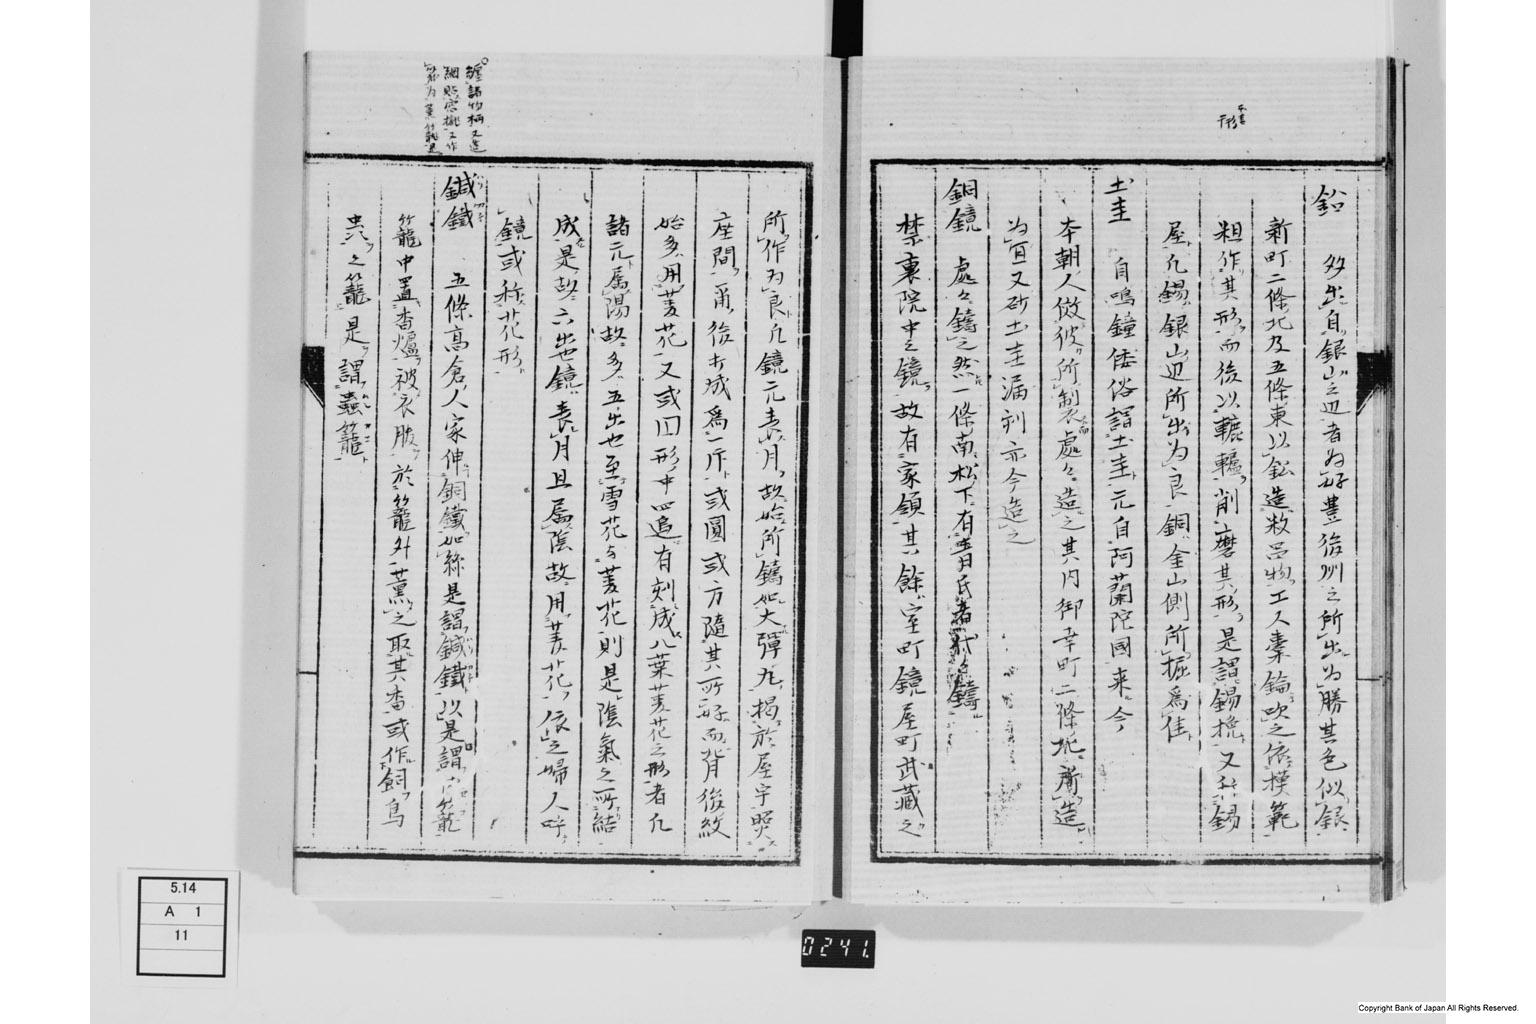 鈆　多出自銀山之辺者為好豊後州之所出為勝其色似銀
新町二條北及五條東以鈆造数品物工人橐錀吹之依模範
粗作其形而後以轆轤削磨其形是謂錫挽又称錫
屋凡錫銀山辺所出為良銅金山側所掘為佳
土圭　自鳴鐘倭俗謂土圭元自阿蘭陀國来今
本朝人倣彼所制処々造之其内御幸町二條北所造
為宜又砂土圭漏刻亦今造之
銅鏡　處々鑄之然一條南松下有青氏者鑄
禁裏院中之鏡故有家領其餘室町鏡屋町武蔵之
所作為良凡鏡元表月故始所鑄如大彈丸掲於屋宇照
座間爾後打成為一片或圓或方隨其所好而背後紋
始多用菱花又或四形中追有刻成八葉菱花之形者凡
諸元属陽故多五出也至雪花与菱花則是陰氣之所結
成是故六出也鏡表月且属陰故用菱花依之婦人呼
鏡或称花形
鍼鐵　五條髙倉人家伸銅鐵如絲是謂鍼鐵以是謂籠
籠中置香爐被衣服於籠外薫之取其香或作飼鳥
虫之籠是謂蟲籠
纏諸物柄又造
網
為薫籠是
5.14
A 1
11
0241.
Copyright Bank of Japan All Rights Reserved.